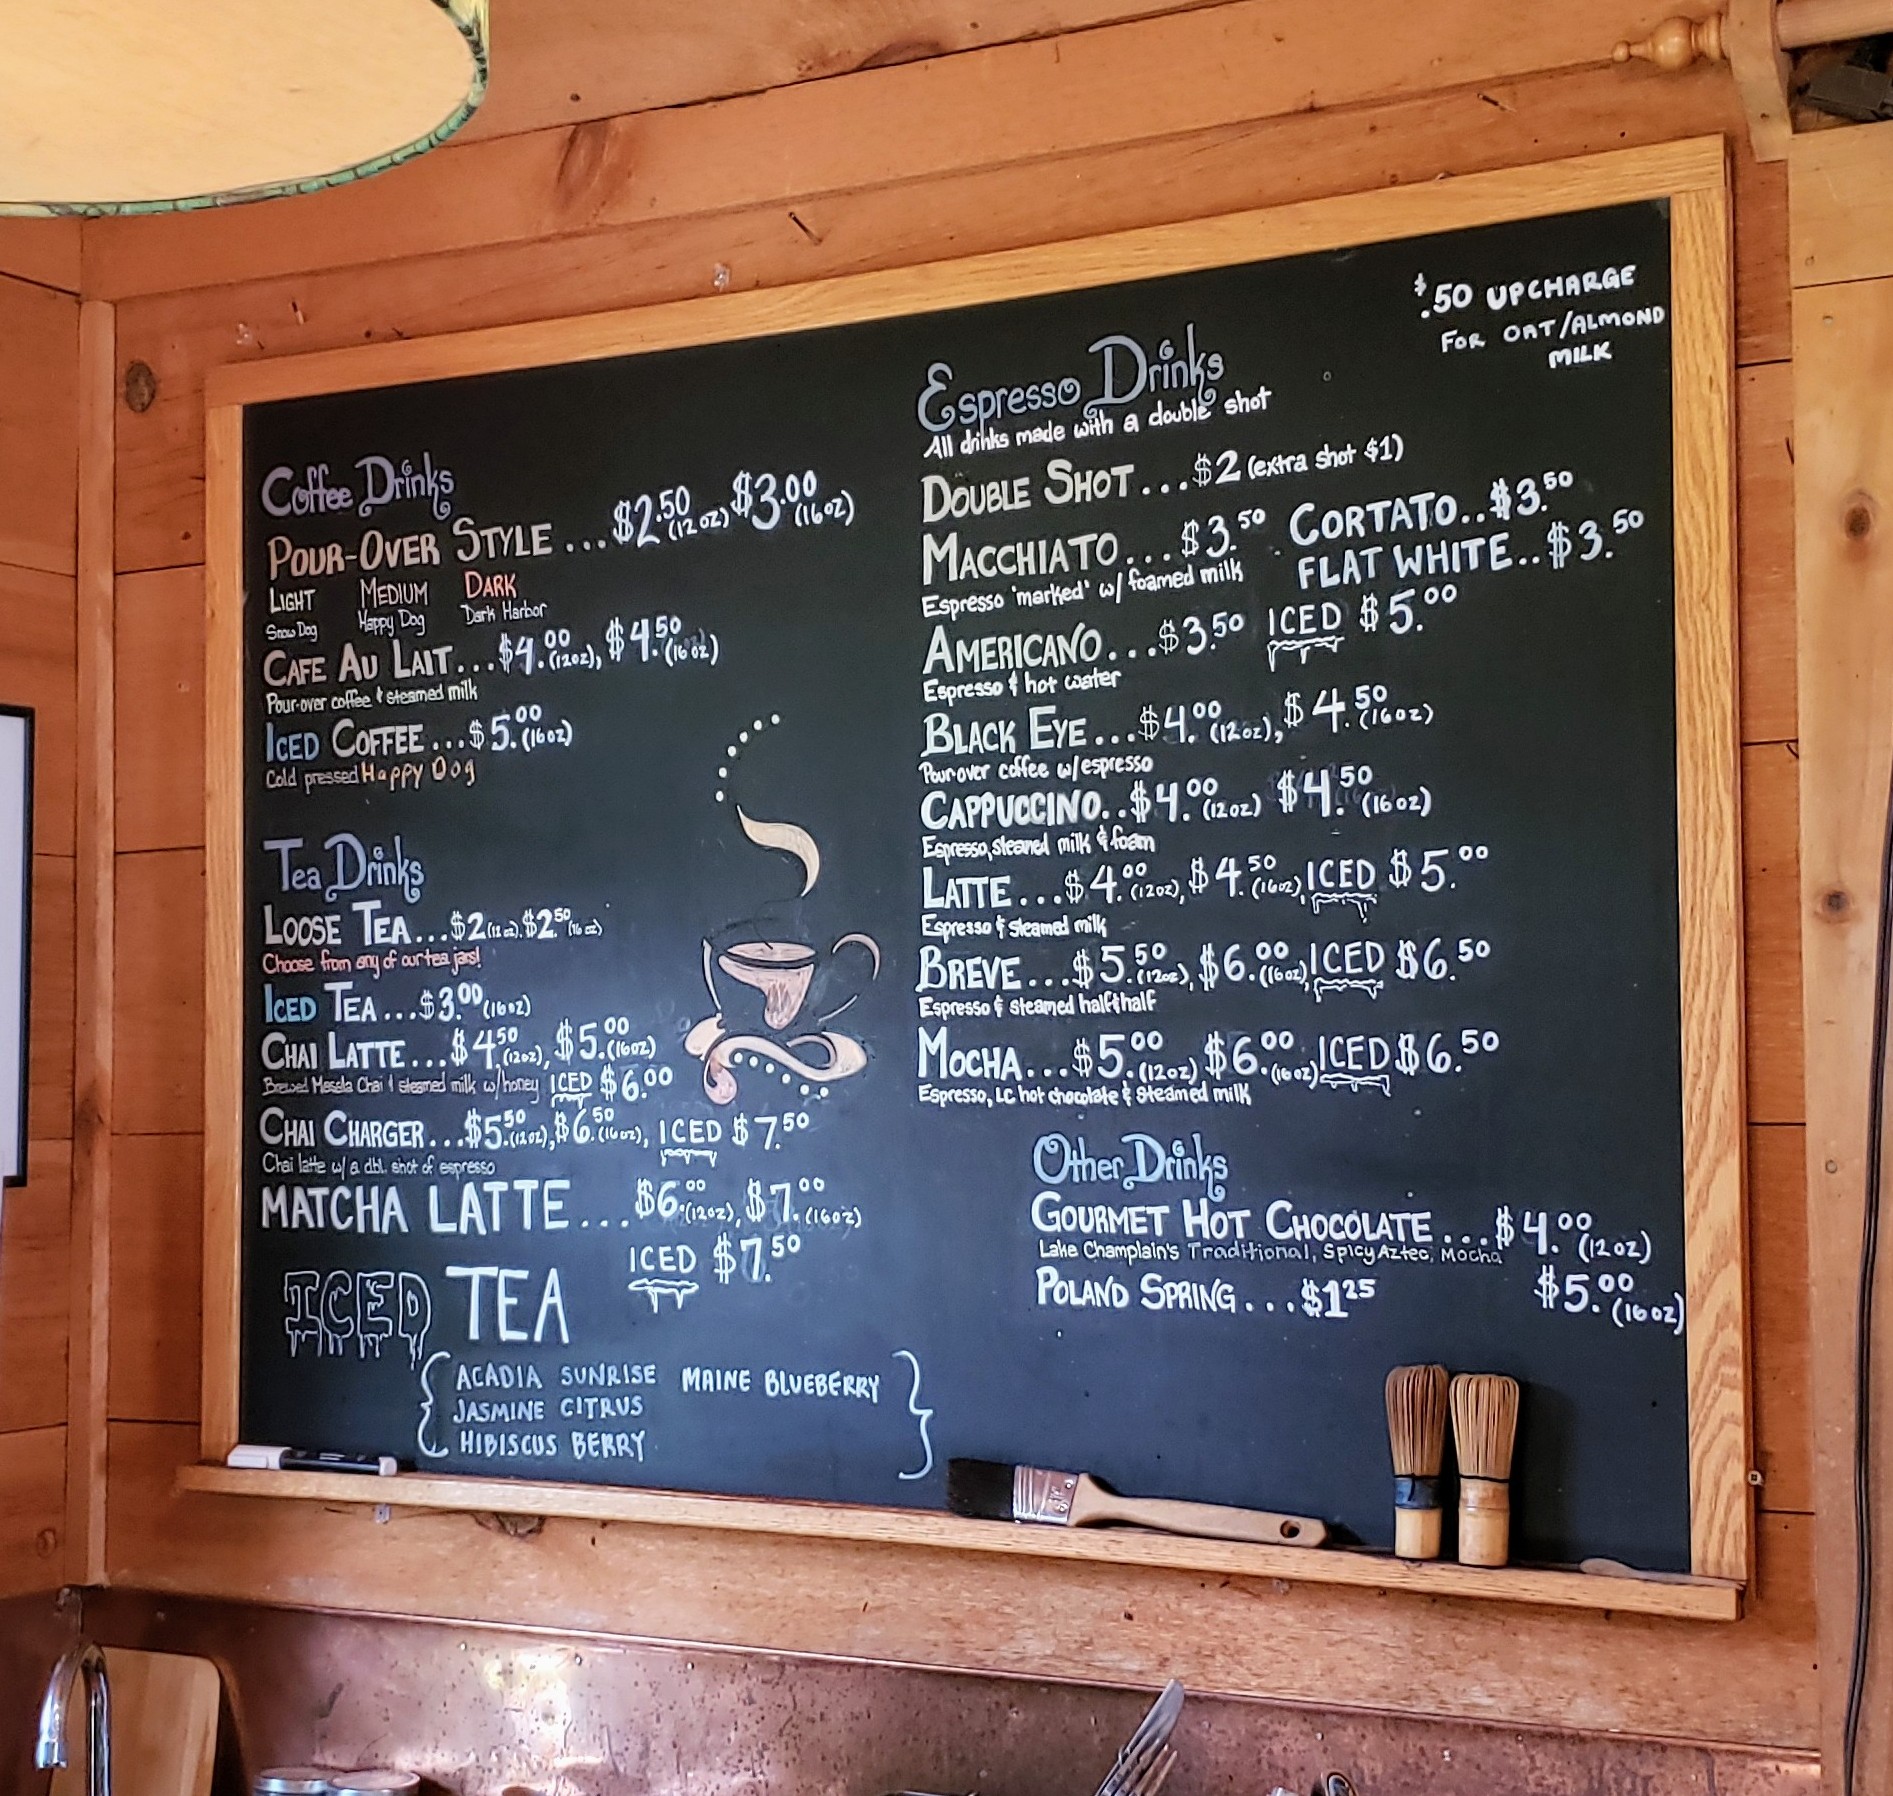 $.50 UPCHARGE
FOR OAT/ALMOND
MILK
Coffee Drinks
POUR-OVER STYLE ... $2.50 (12 oz) $3.00 (16 oz)
LIGHT MEDIUM DARK
Snow Dog Happy Dog Dark Harbor
CAFE AU LAIT ... $4.00 (12oz), $4.50 (16 oz)
Pour-over coffee & steamed milk
ICED COFFEE ... $5.00 (16oz)
Cold pressed Happy Dog
Tea Drinks
LOOSE TEA ... $2 (12 oz), $2.50 (16 oz)
Choose from any of our tea jars!
ICED TEA ... $3.00 (16oz)
CHAI LATTE ... $4.50 (12oz), $5.00 (16oz)
Brewed Masala Chai & steamed milk w/honey ICED $6.00
CHAI CHARGER ... $5.50 (12oz), $6.50 (16oz), ICED $7.50
Chai latte w/ a dbl. shot of espresso
MATCHA LATTE ... $6.00 (12oz), $7.00 (16oz)
ICED $7.50
ICED TEA
ACADIA SUNRISE MAINE BLUEBERRY
JASMINE CITRUS
HIBISCUS BERRY
Espresso Drinks
All drinks made with a double shot
DOUBLE SHOT ... $2 (extra shot $1)
MACCHIATO ... $3.50 CORTATO .. $3.50
Espresso 'marked' w/ foamed milk FLAT WHITE .. $3.50
AMERICANO ... $3.50 ICED $5.00
Espresso & hot water
BLACK EYE ... $4.00 (12oz), $4.50 (16oz)
Pourover coffee w/espresso
CAPPUCCINO .. $4.00 (12oz) $4.50 (16oz)
Espresso, steamed milk & foam
LATTE ... $4.00 (12oz), $4.50 (16oz), ICED $5.00
Espresso & steamed milk
BREVE ... $5.50 (12oz), $6.00 (16oz), ICED $6.50
Espresso & steamed half&half
MOCHA ... $5.00 (12oz) $6.00 (16oz) ICED $6.50
Espresso, LC hot chocolate & steamed milk
Other Drinks
GOURMET HOT CHOCOLATE ... $4.00 (12oz)
Lake Champlain's Traditional, Spicy Aztec, Mocha
POLAND SPRING ... $1.25 $5.00 (16oz)